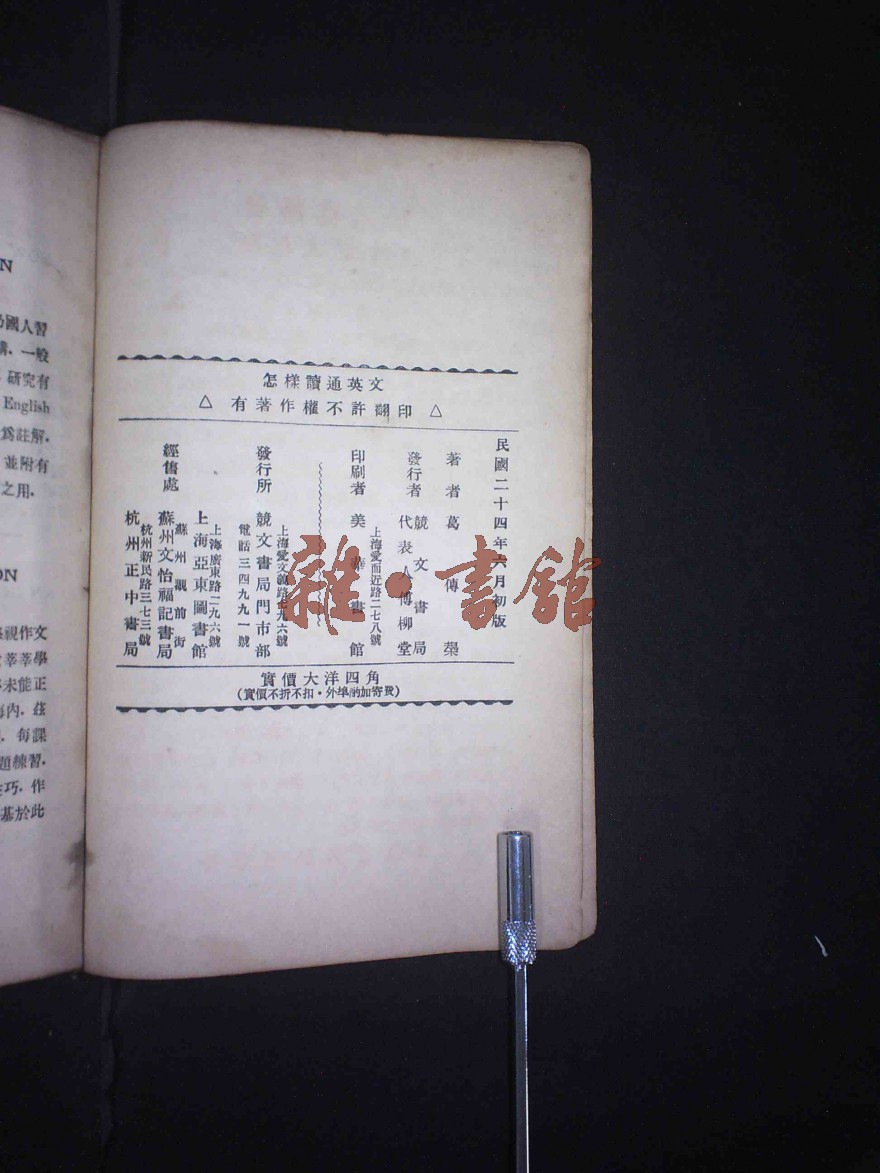 怎樣讀通英文
△ 有著作權不許翻印 △
民國二十四年六月初版
著者 葛傳槼
發行者 競文書局
代表人 傅柳堂
上海愛而近路二七八號
印刷者 美華書館
發行所 競文書局門市部
上海愛文義路七九六號
電話三四九九一號
經售處
上海亞東圖書館
上海廣東路二九六號
蘇州文怡福記書局
蘇州觀前街
杭州正中書局
杭州新民路三七三號
實價大洋四角
(實價不折不扣·外埠酌加寄費)
雜·書館
ON
國人習
一般
研究有
English
爲註解.
並附有
之用.
ION
視作文
莘莘學
未能正
內. 茲
每課
題練習.
巧. 作
基於此